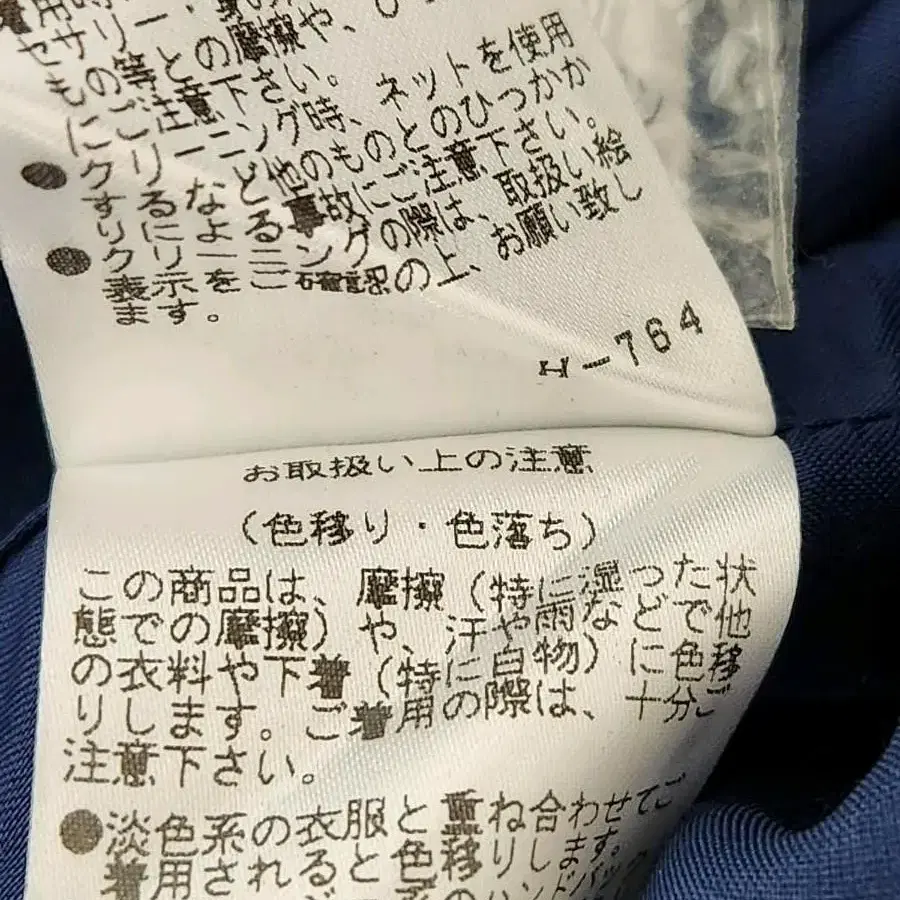 の摩擦や、ひ
等注意下さい。
クリーニング時、ネットを使用
するなど他のものとのひっかか
りによる事故にご注意下さい。
クリーニングの際は、取扱い絵
表示をご確認の上、お願い致し
ます。
I-764
お取扱い上の注意
(色移り・色落ち)
この商品は、摩擦(特に湿った状
態での摩擦)や、汗や雨などで他
の衣料や下着(特に白物)に色移
りします。ご着用の際は、十分ご
注意下さい。
●淡色系の衣服と重ね合わせてご
着用されると色移りします。
ハンドバッグ